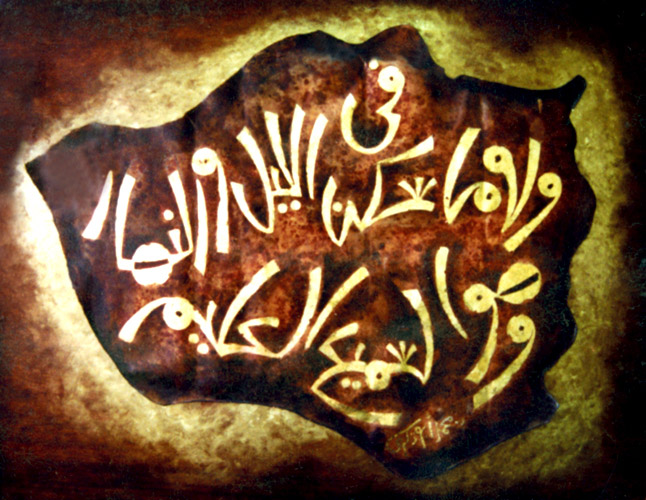 وله ما سكن في الليل والنهار
وهو السميع العليم